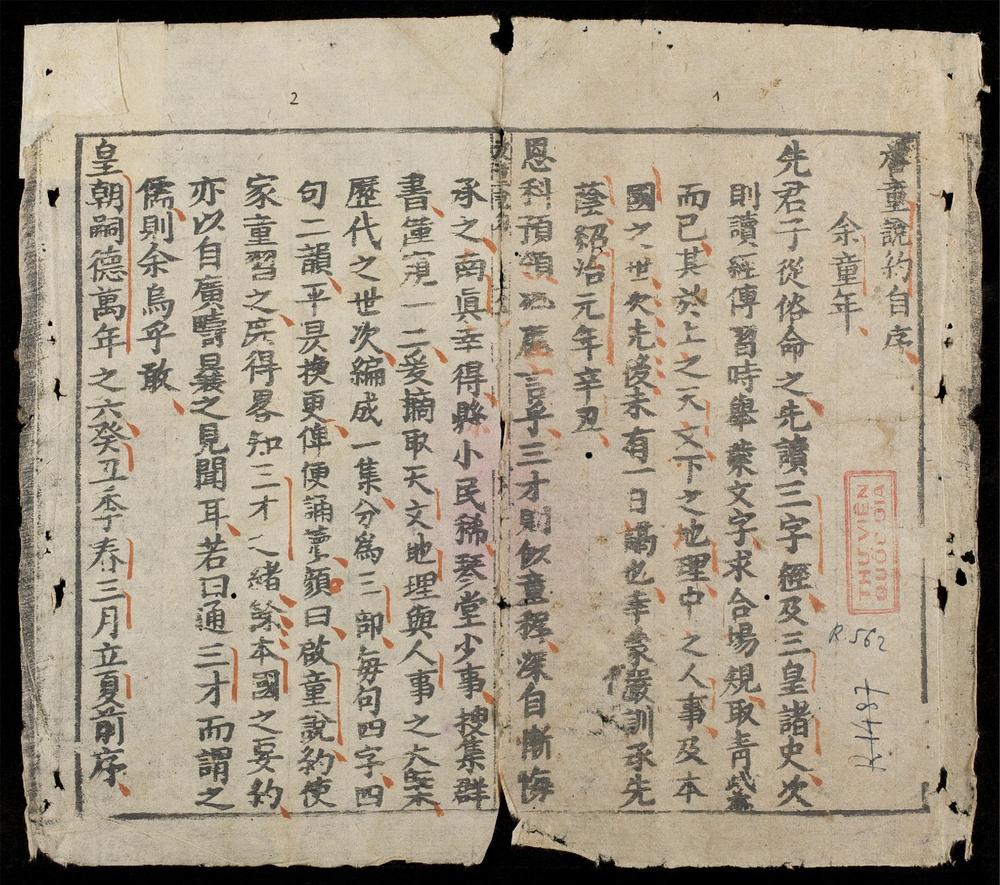 啓童說約自序
余童年
先君子從俗命之先讀三字經及三皇諸史次
則讀經傳習時舉業文字求合場規取青紫
而已其於上之天文下之地理中之人事及本
國之世次先後未有一日講也幸蒙嚴訓承先
蔭紹治元年辛丑
恩科預領鄉薦言乎三才則似童稚深自慚悔
承之南真幸得縣小民稀琴堂少事搜集群
書僅窺一二爰摘取天文地理與人事之大槩
歷代之世次編成一集分為三部每句四字四
句二韻平仄換更俾便誦讀顏曰啟童說約使
家童習之庶得畧知三才之緒餘本國之要約
亦以自廣疇曩之見聞耳若曰通三才而謂之
儒則余烏乎敢
皇朝嗣德萬年之六癸丑季春三月立夏前序
1
2
THƯ VIỆN
QUỐC GIA
R.562